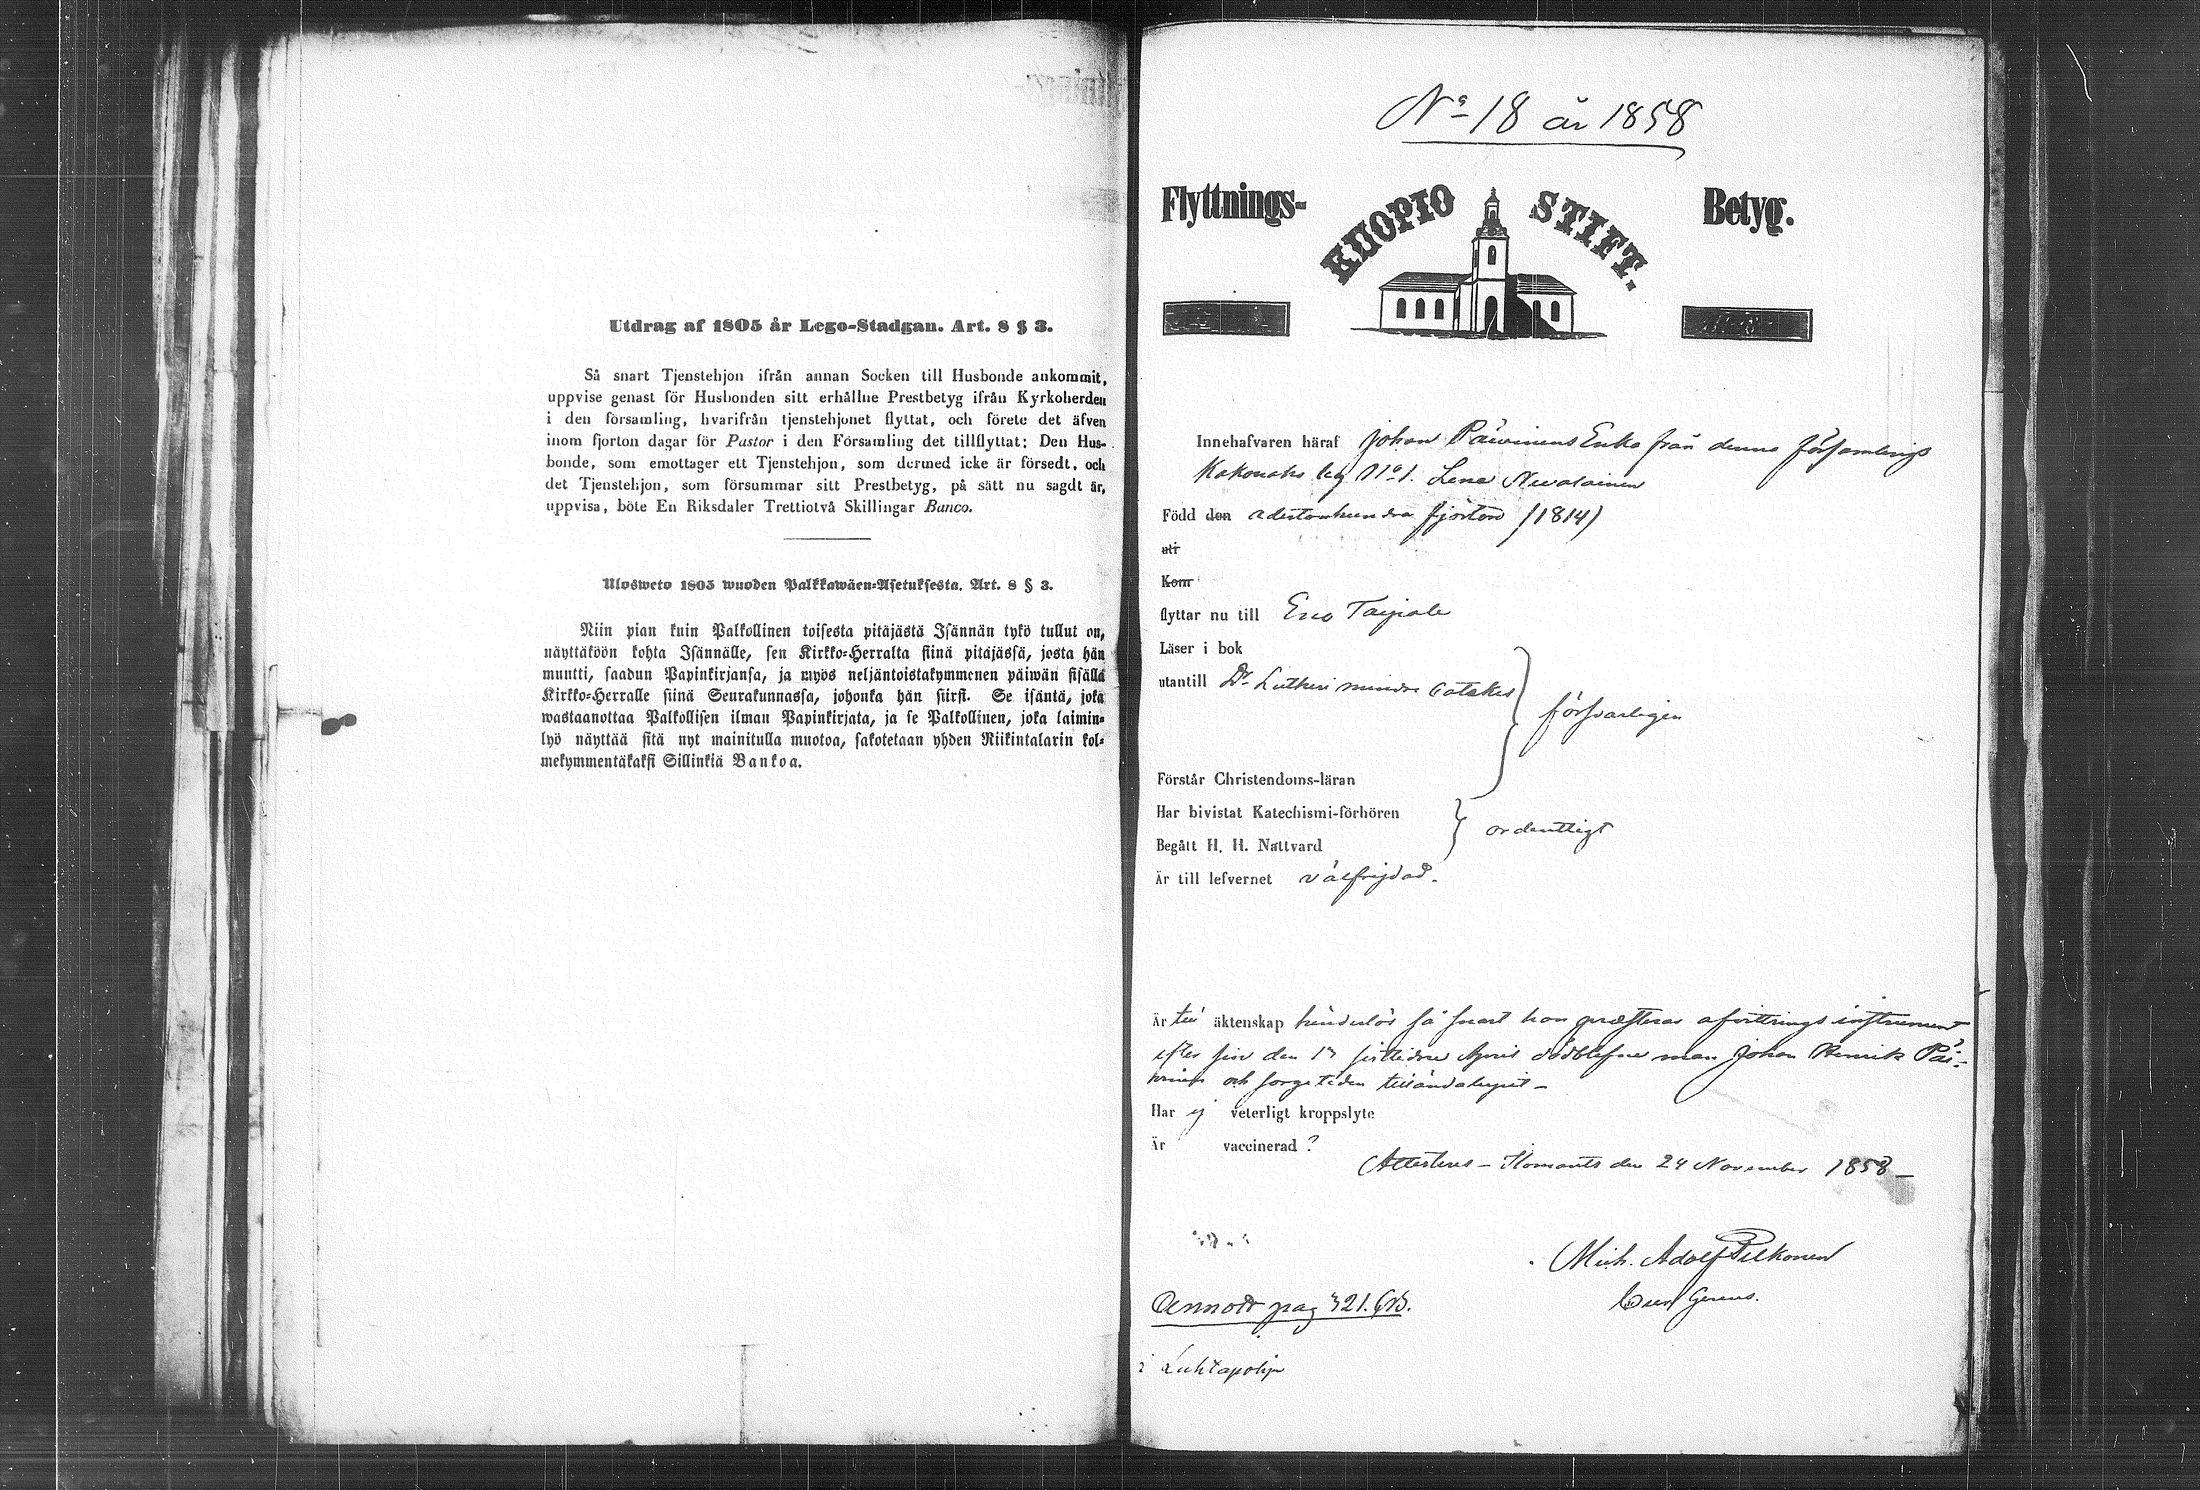 Utdrag af 1805 år Lego-Stadgan. Art. 8 § 3.
Så snart Tjenstehjon ifrån annan Socken till Husbonde ankommit,
uppvise genast för Husbonden sitt erhållne Prestbetyg ifrån Kyrkoherden
i den församling, hvarifrån tjenstehjonet flyttat, och förete det äfven
inom fjorton dagar för Pastor i den Församling det tillflyttat: Den Hus-
bonde, som emottager ett Tjenstehjon, som dermed icke är försedt, och
det Tjenstehjon, som försummar sitt Prestbetyg, på sätt nu sagdt är,
uppvisa, böte En Riksdaler Trettiotvå Skillingar Banco.
Ulosweto 1805 wuoden Palkkawäen-Asetuksesta. Art. 8 § 3.
Niin pian kuin Palkollinen toisesta pitäjästä Isännän tykö tullut on,
näyttäköön kohta Isännälle, sen Kirkko-Herralta siinä pitäjässä, josta hän
muutti, saadun Papinkirjansa, ja myös neljäntoistakymmenen päiwän sisällä
Kirkko-Herralle siinä Seurakunnassa, johonka hän siirsi. Se isäntä, joka
wastaanottaa Palkollisen ilman Papinkirjata, ja se Palkollinen, joka laimin-
lyö näyttää sitä nyt mainitulla muotoa, sakotetaan yhden Riikintalarin kol-
mekymmentäkaksi Sillinkiä Bankoa.
No 18 år 1858
Flyttnings- KUOPIO STIFT. Betyg.
Innehafvaren häraf Johan Päivinens Enka från denna församlings
Kakonaho by No 1. Lena Nevalainen
Född den adertonhundra fjorton (1814)
uti
Kom
flyttar nu till Eno Taipale
Läser i bok
utantill Dr Lutheri mindre Cateches
försvarligen
Förstår Christendoms-läran
Har bivistat Katechismi-förhören
ordentligt
Begått H. H. Nattvard
Är till lefvernet välfrejdad.
Är till äktenskap hinderlös så snart hon præsterar afvittrings instrument
efter sin den 13 sistlidne April dödblefne man Johan Henrik Päi-
vinen och sorgetiden tilländalupit -
Har ej veterligt kroppslyte
Är vaccinerad?
Attesteras - Ilomants den 24 November 1858 -
Mich. Adolf Pelkonen
Annot pag 321.
i Luhtapohja